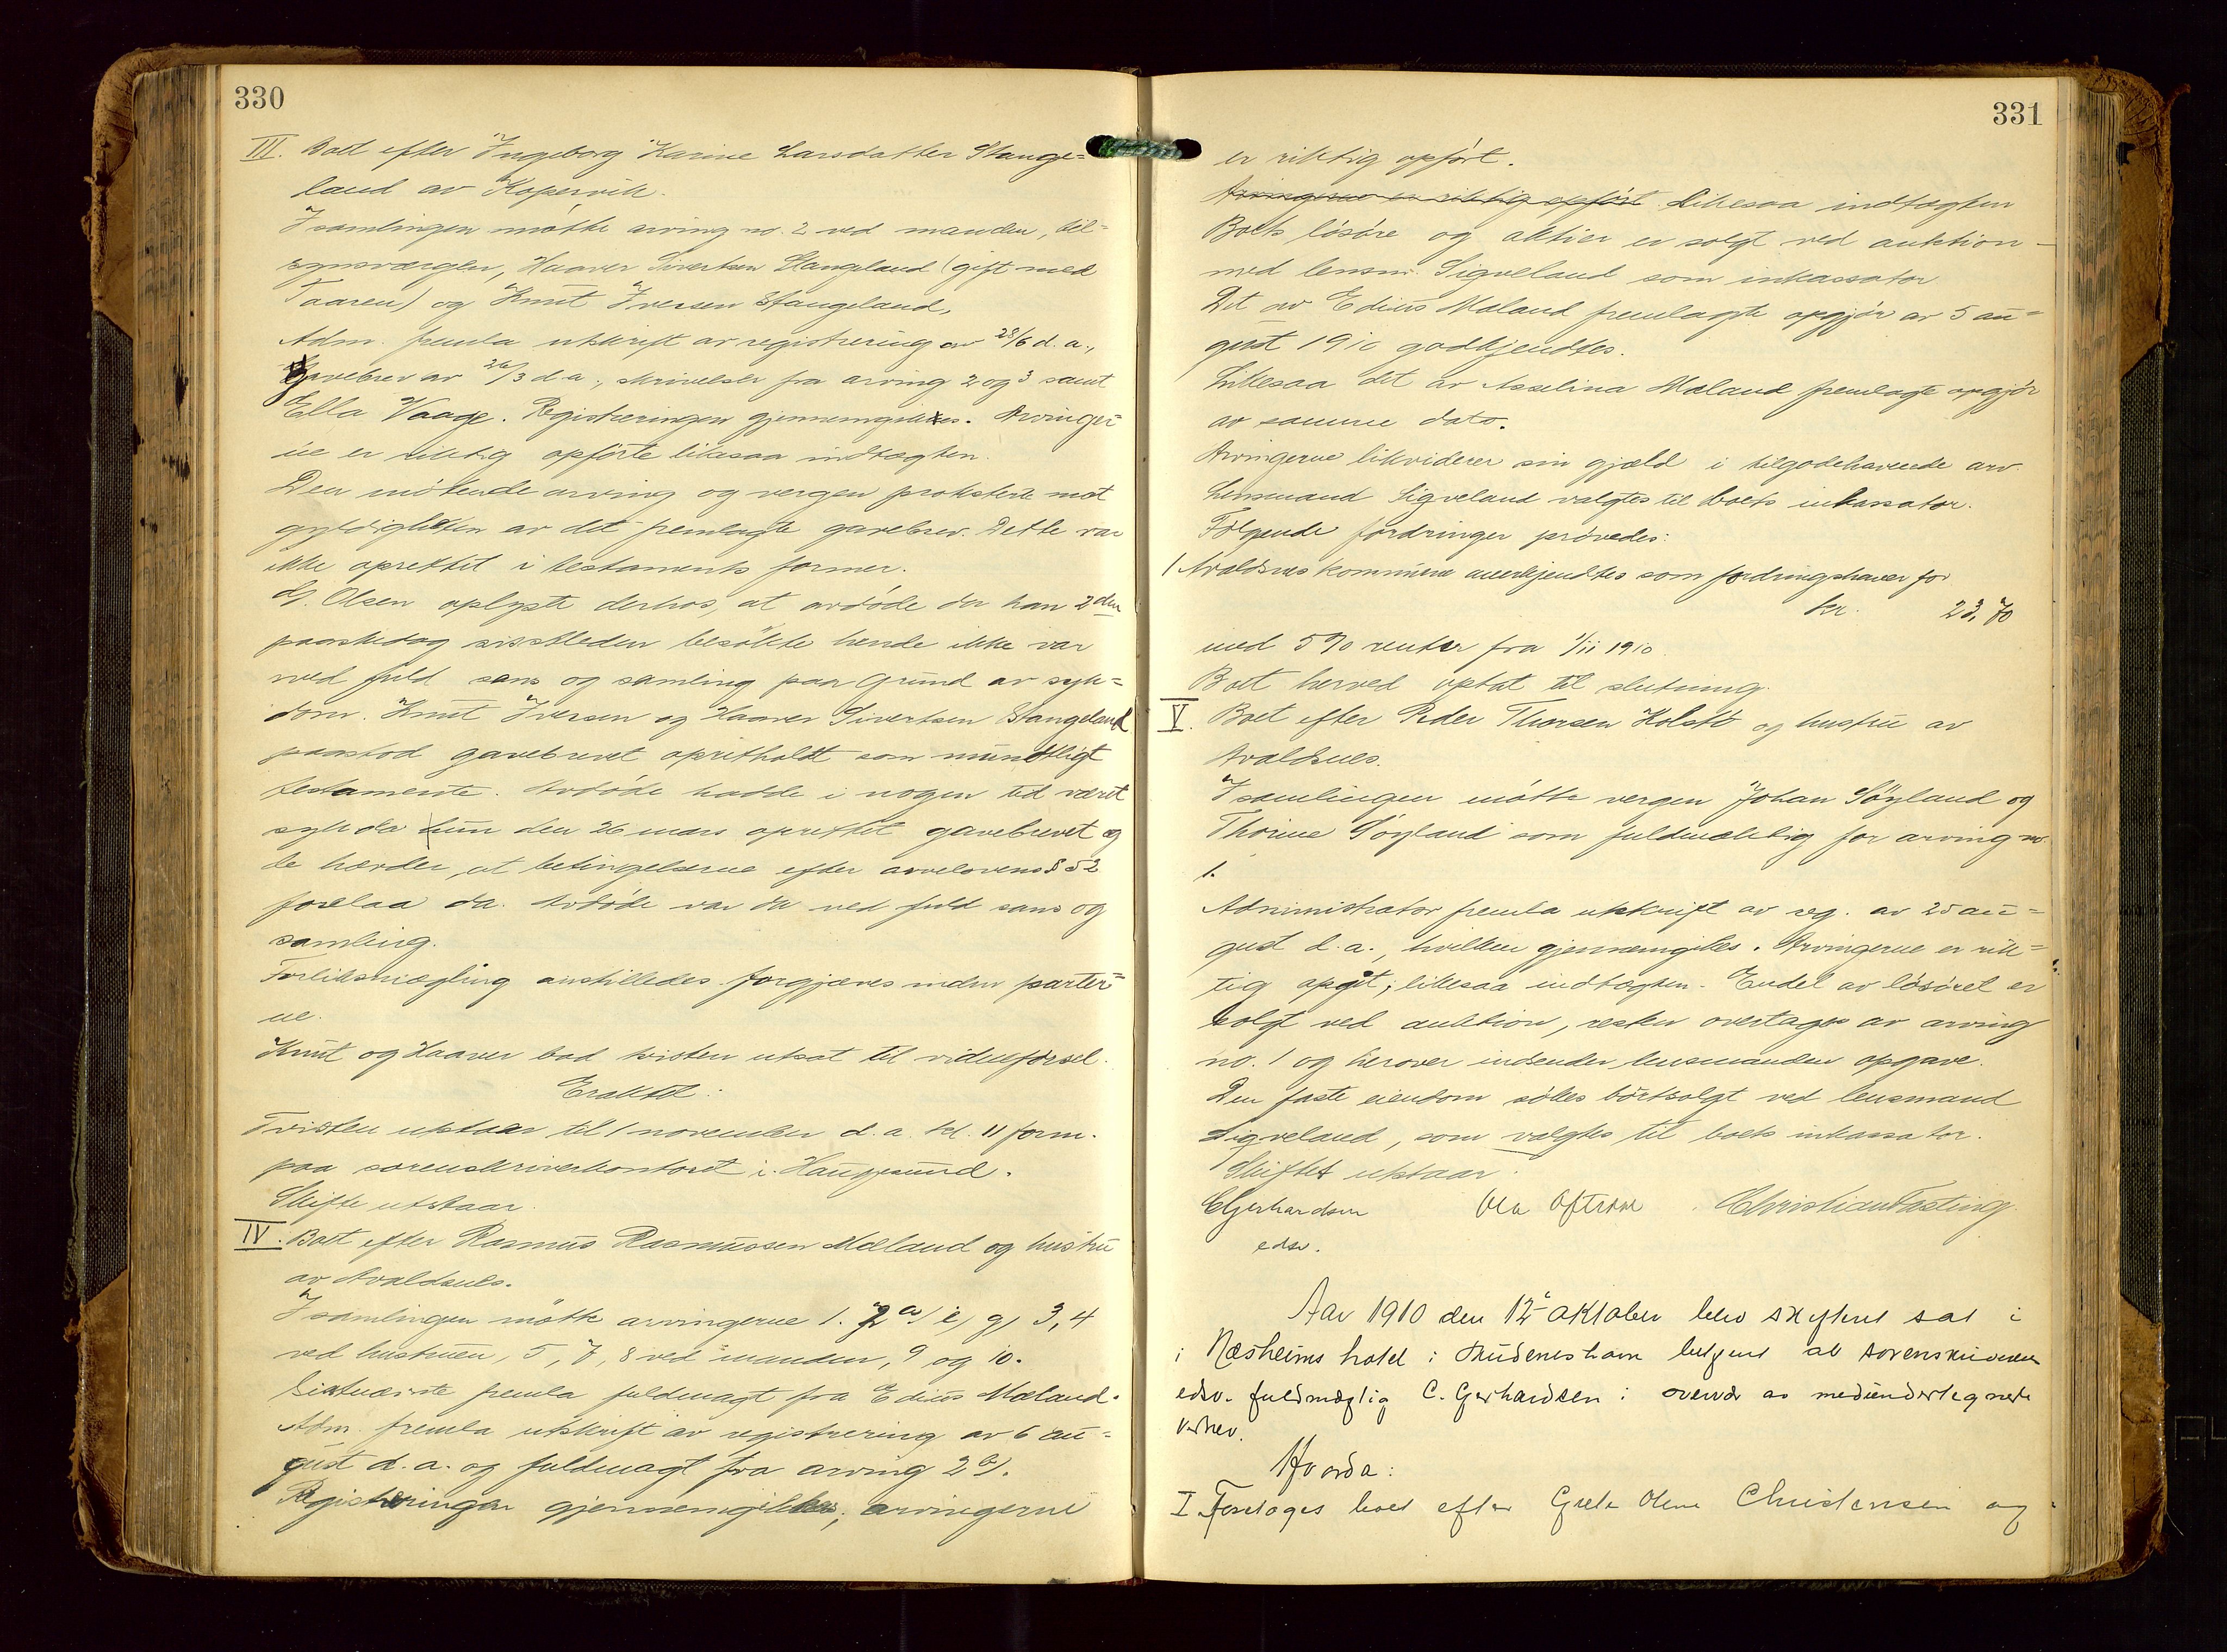 330
III. Boet efter Ingeborg Karine Larsdatter Stange=
land av Kopervik.
I samlingen møtte arving no. 2 ved manden, til=
synsvergen, Haaver Sivertsen Stangeland (gift med
Taaren) og Knut Iversen Stangeland.
Adm. fremla utskrift av registrering av 28/6 d. a.,
gavebrev av 26/3 d. a., skrivelser fra arving 2 og 3 samt
Ella Vaage. Registreringen gjennemgikkes. Arvinger=
ne er riktig opførte likesaa indtægten.
Den møtende arving og vergen protesterte mot
gyldigheten av det fremlagte gavebrev. Dette var
ikke oprettet i testaments former.
G. Olsen oplyste derhos, at avdøde da han 2den
paaskedag sistleden besøkte hende ikke var
ved fuld sans og samling paa grund av syk=
dom. Knut Iversen og Haaver Sivertsen Stangeland
paastod gavebrevet opretholdt som mundtligt
testamente. Avdøde hadde i nogen tid været
syk da hun den 26 mars oprettet gavebrevet og
de hævder, at betingelserne efter arvelovens § 52
forelaa da. Avdøde var da ved fuld sans og
samling.
Forliksmægling anstilledes forgjæves inden parter=
ne.
Knut og Haaver bad tvisten utsat til vidneførsel.
Eragtet:
Tvisten utstaar til 1 november d. a. kl. 11 form.
paa sorenskriverkontoret i Haugesund.
Skifte utstaar.
IV. Boet efter Rasmus Rasmussen Mæland og hustru
av Avaldsnes.
I samlingen møtte arvingerne 1. 2 a) e) g) 3, 4
ved hustruen, 5, 7, 8 ved manden, 9 og 10.
Sistnævnte fremla fuldmagt fra Edius Mæland.
Adm. fremla utskrift av registrering av 6 au=
gust d. a. og fuldmagt fra arving 2 a).
Registreringen gjennemgikkes; arvingerne
331
er riktig opført.
Arvingerne er riktig opført. Likesaa indtægten
Boets løsøre og aktier er solgt ved auktion
med lensm. Sigveland som inkassator
Det av Edius Mæland fremlagte opgjør av 5 au=
gust 1910 godkjendtes.
Likesaa det av Asselina Mæland fremlagte opgjør
av samme dato.
Arvingerne likviderer sin gjæld i tilgodehavende arv.
Lensmand Sigveland valgtes til boets inkassator.
Følgende fordringer prøvedes:
1 Avaldsnes kommune anerkjendtes som fordringshaver for
kr. 23,70
med 5% renter fra 1/11 1910.
Boet herved optat til slutning.
V. Boet efter Peder Thorsen Kolstø og hustru av
Avaldsnes.
I samlingen møtte vergen Johan Søyland og
Thorine Søyland som fuldmæktig for arving no.
1.
Administrator fremla utskrift av reg. av 25 au=
gust d. a., hvilken gjennemgikkes. Arvingerne er rik=
tig opgit; likesaa indtægten. Endel av løsøret er
solgt ved auktion, resten overtages av arving
no. 1 og herover indsender lensmanden opgave.
Den faste eiendom søkes bortsolgt ved lensmand
Sigveland, som valgtes til boets inkassator.
Skiftet utstaar.
C Gerhardsen Ola Christian Fasting
edsv.
Aar 1910 den 12te oktober blev skifteret sat i
i Næsheims hotel i Skudeneshavn betjent av sorenskriverens
edsv. fuldmægtig C. Gerhardsen i overvær av medundertegnede
vidner.
Hvorda:
I Foretoges boet efter Grete Olene Christensen og